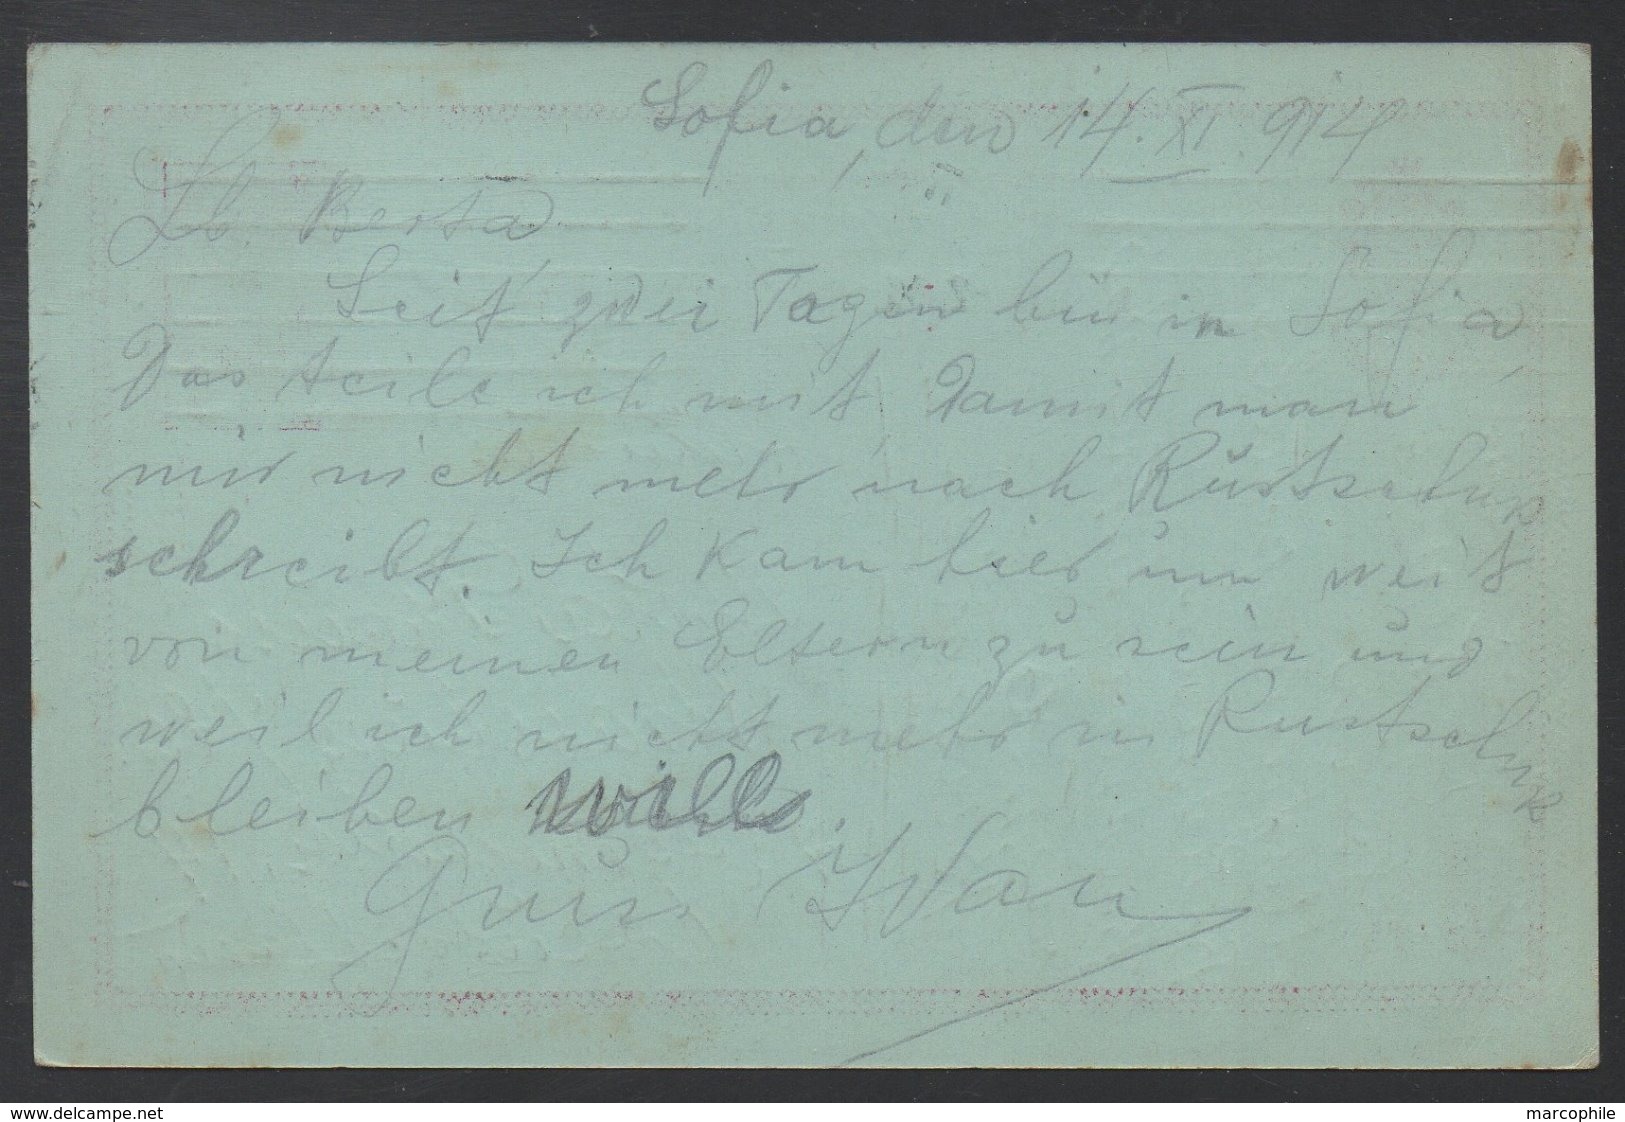 Sofia, den 14. XI. 914
Lb. Berta
Seit zwei Tagen bin in Sofia,
Das teile ich mit, Damit man
mir nicht mehr nach Rustschuk
schreibt. Ich kam hier um weit
von meinen Eltern zu sein und
weil ich nicht mehr in Rustschuk
bleiben will.
Gruss Ivan
www.delcampe.net
marcophile